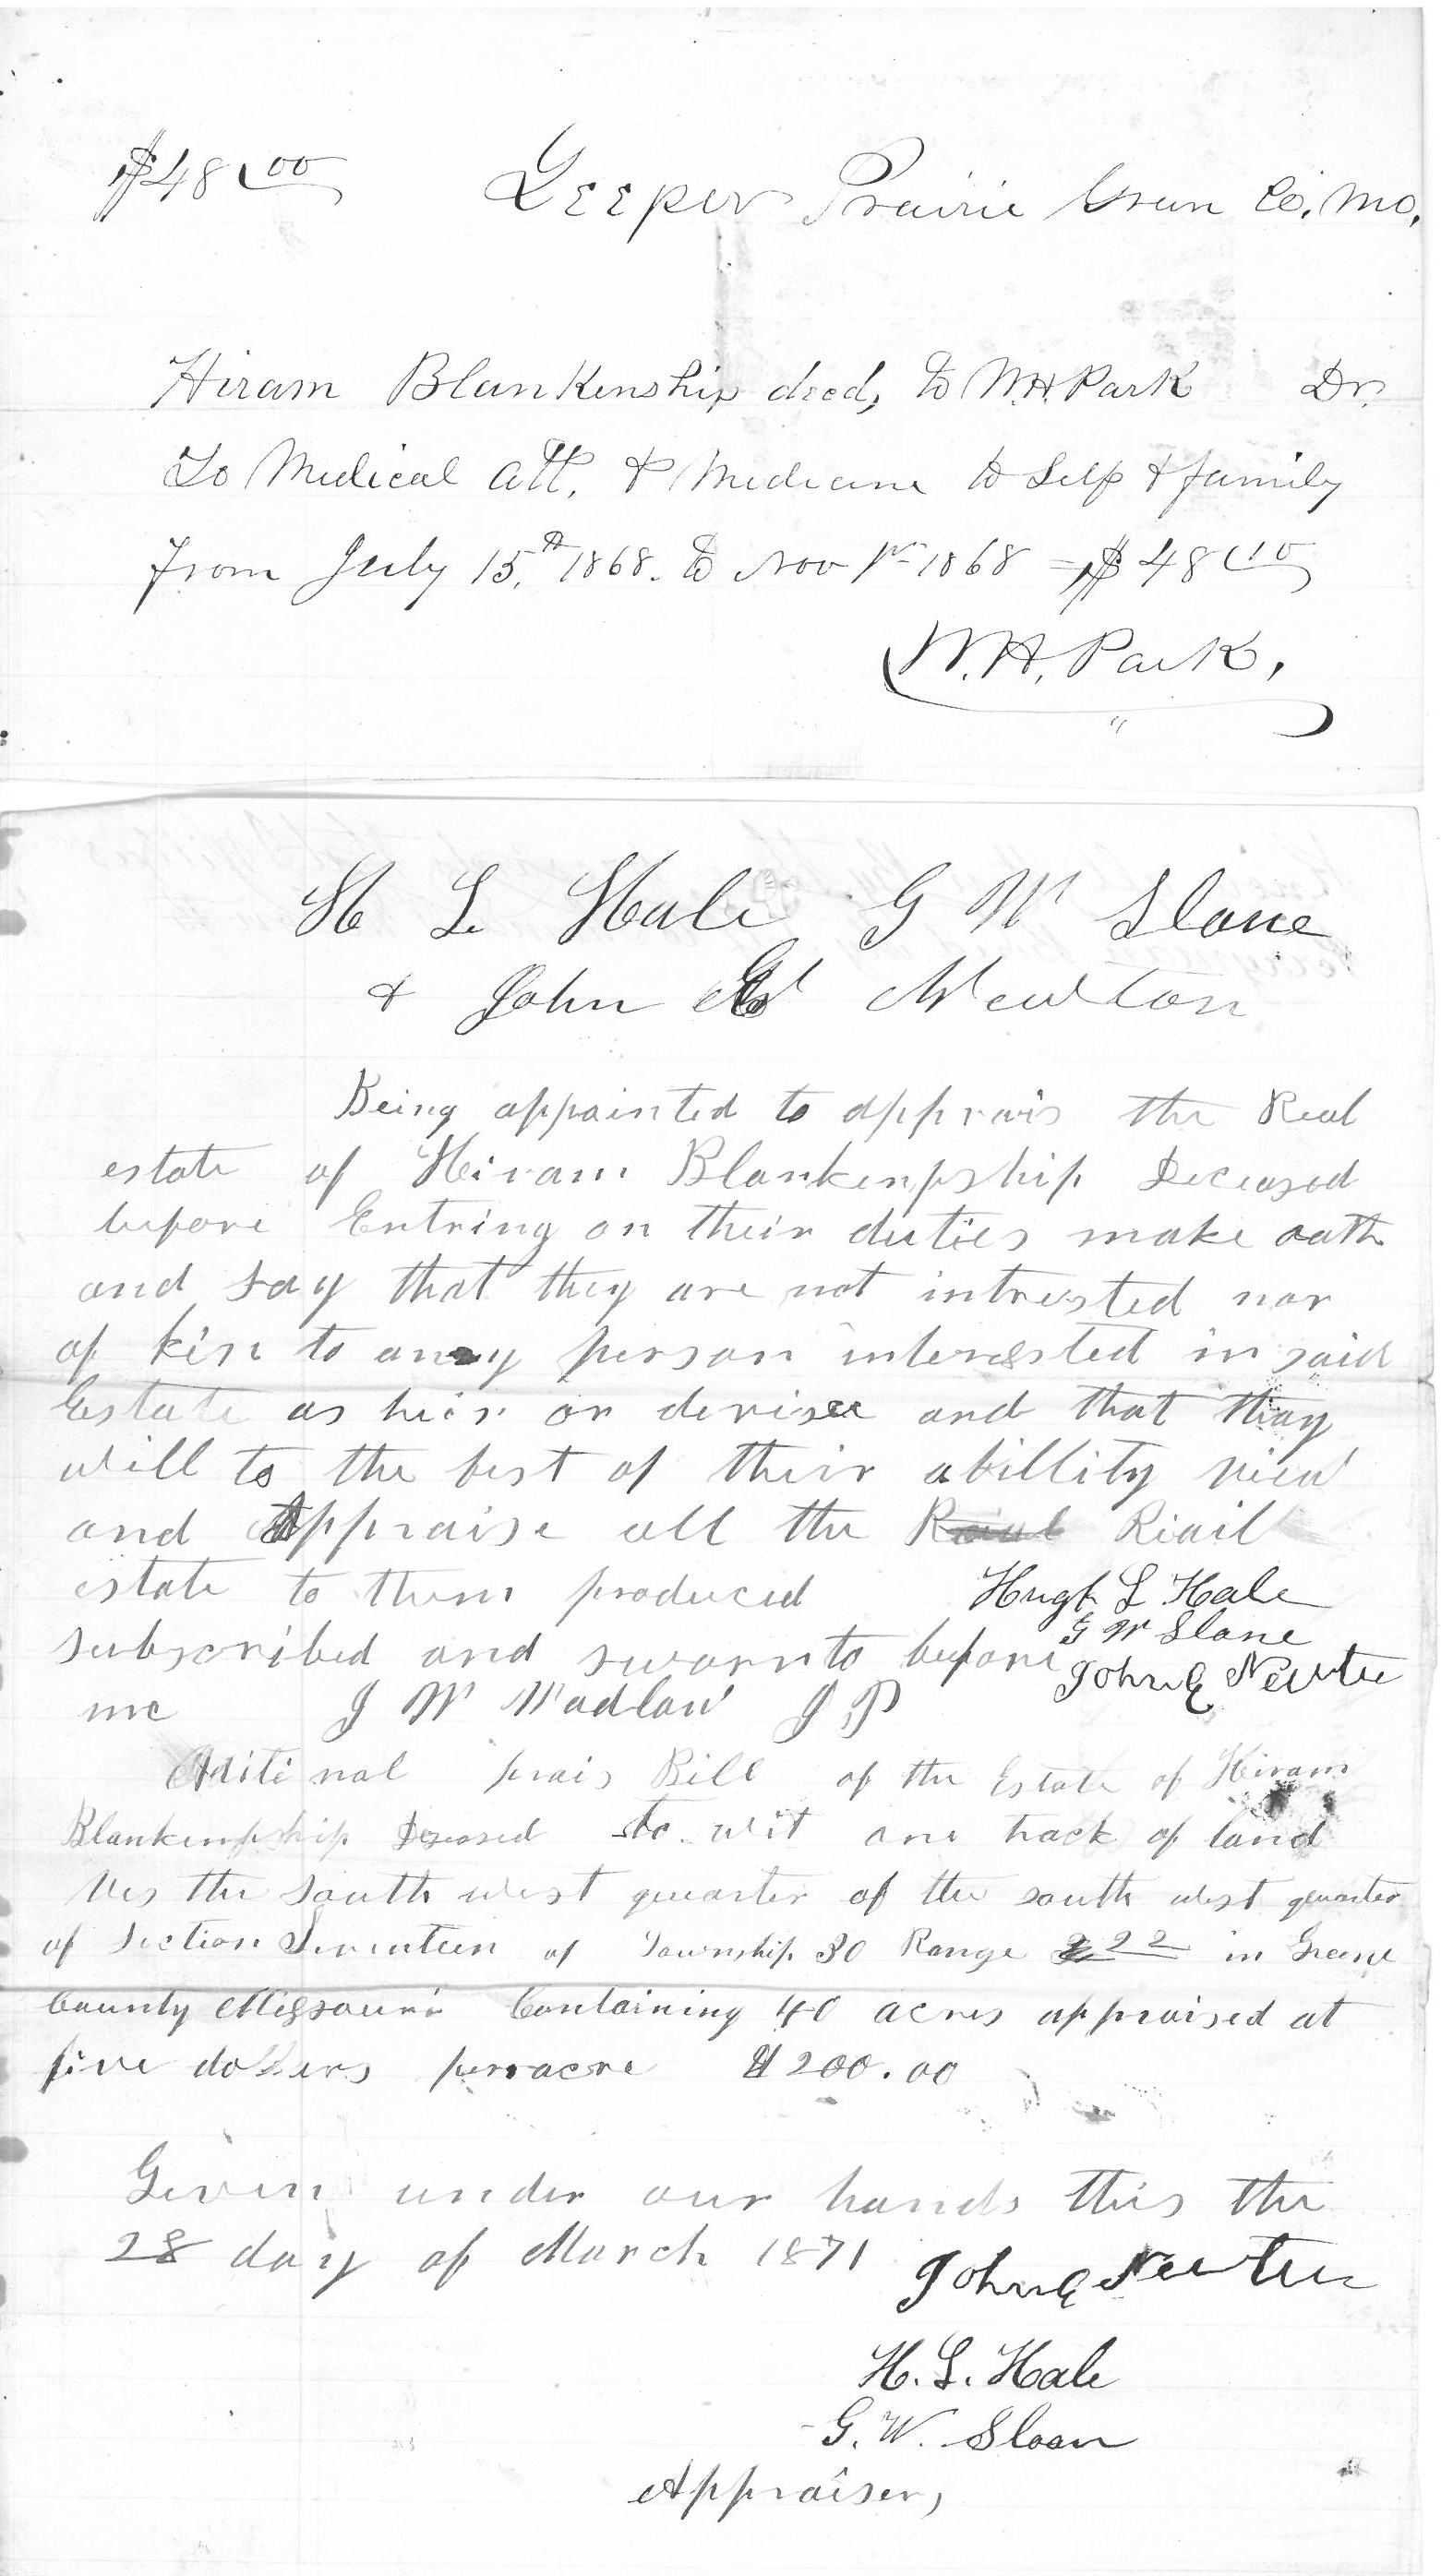 $48 00 Leeper Prairie Green Co, Mo,
Hiram Blankenship decd, to W.H. Park Dr.
To Medical att. & Medicine to Self & family
from July 15,th 1868. to Nov 1st 1868 = $48 00
W. H. Park,
H L Hale G W Slone
& John Newton
Being appointed to apprais the Real
estate of Hiram Blankenpship Deceased
before Entring on their duties make oath
and say that they are not intrested nor
of kin to any person interested in said
Estate as heir or devisee and that thay
will to the best of their abillity view
and Appraise all the Riail
estate to them produced Hugh L Hale
G W Slone
subscribed and sworn to before John E Newton
me J W Wadlow J P
Aditi nal prais Bill of the Estate of Hiram
Blankenpship Deseased to wit one track of land
the south west quarter of the south west quarter
of Section Seventeen of Township 30 Range 22 in Greene
County Missouri Containing 40 acres appraised at
five dollars per acre $200.00
Given under our hands this the
28 day of March 1871 John E Newton
H. L. Hale
G. W. Sloan
Appraisers